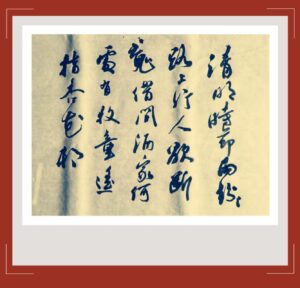 清明時節雨紛々
路上行人欲斷
魂借問酒家何
處有牧童遙
指杏花村